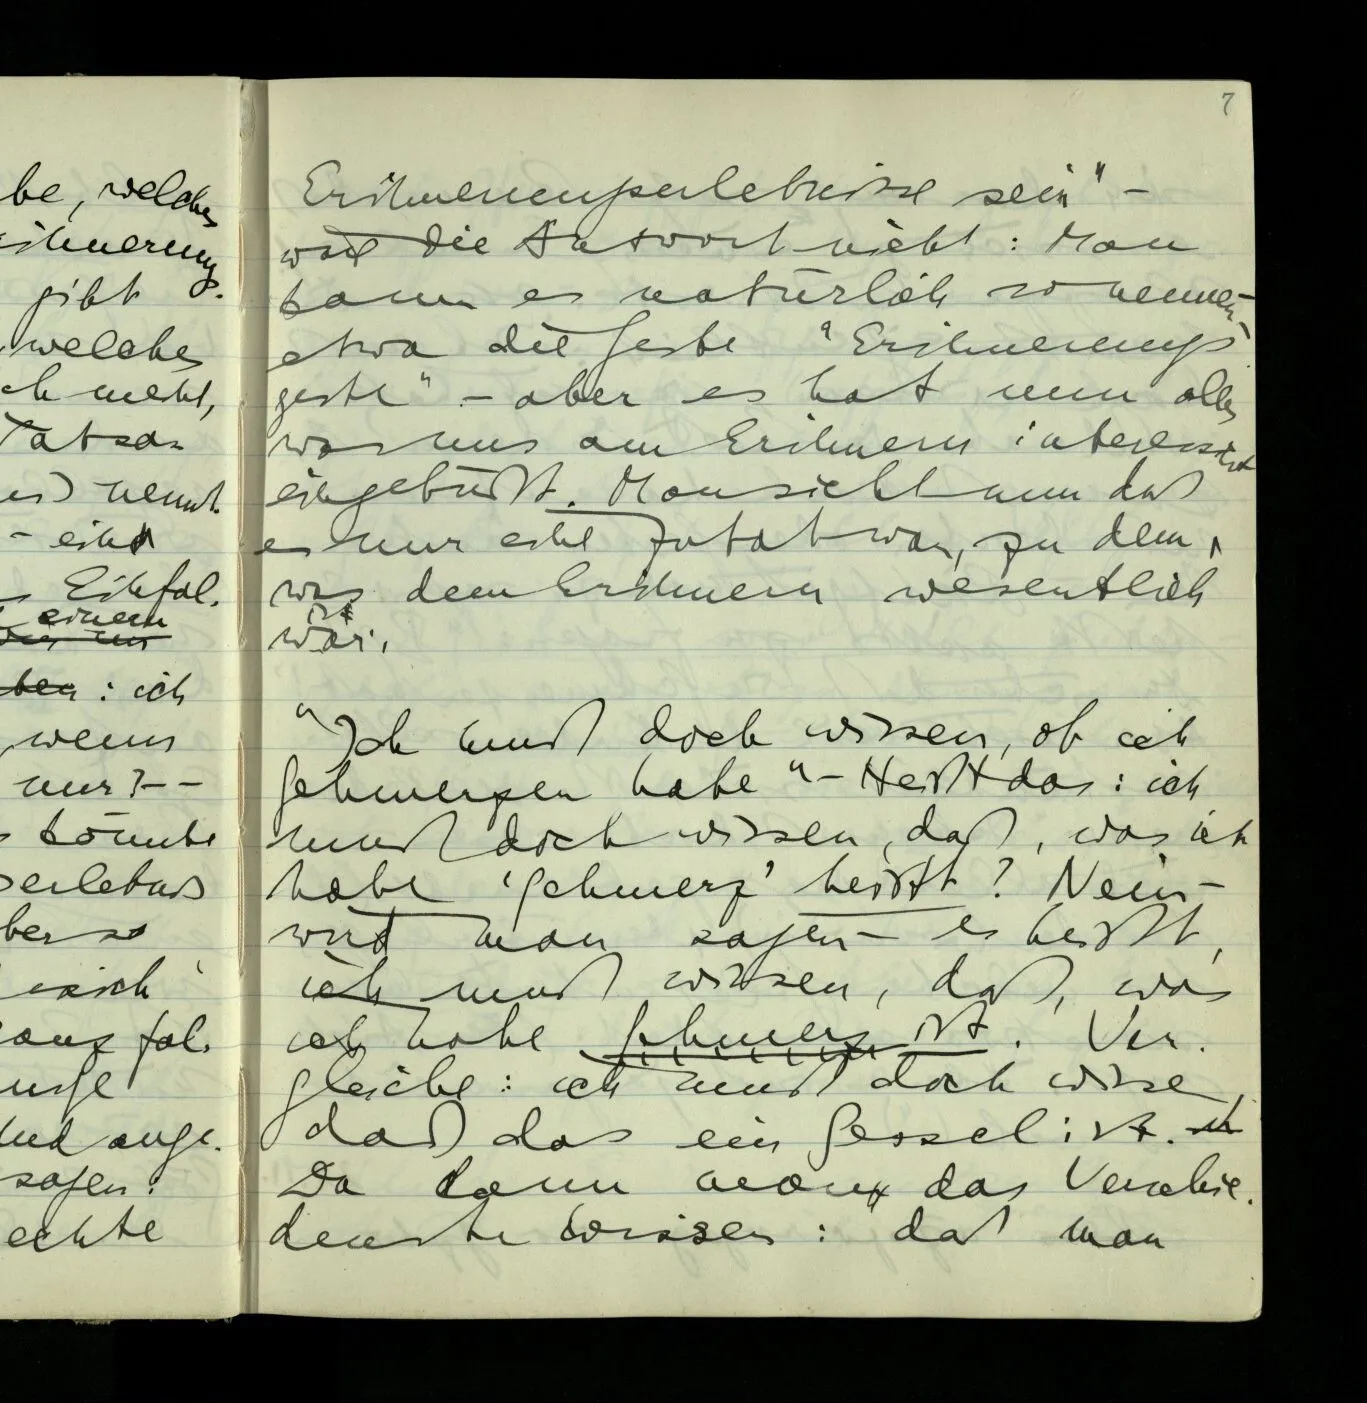 be, welches
rinnerung
gibt
welches
ch nicht,
Tatsa-
nennt
- eine
Einfal-
einem
: ich
wenn
nur? - -
könnte
erlebnis
ber so
sich
ganz fal-
und ange-
sagen:
echte
7
Erinnerungserlebnisse sein" –
war die Antwort nicht: Man
kann es natürlich so nennen –
etwa die Geste "Erinnerungs-
geste" – aber es hat nun alles
was uns am Erinnern interessiert
eingebüßt. Man sieht nun daß
es nur eine Zutat war, zu dem,
was dem Erinnern wesentlich
ist
wär.
"Ich muß doch wissen, ob ich
Schmerzen habe" – Heißt das: ich
muß doch wissen, daß, was ich
habe 'Schmerz' heißt? Nein –
wird man sagen – es heißt,
ich muß wissen, daß, was
ich habe Schmerz ist. Ver-
gleiche: ich muß doch wissen,
daß das ein Sessel ist.
Da kann man das Verschie-
denste wissen: daß man